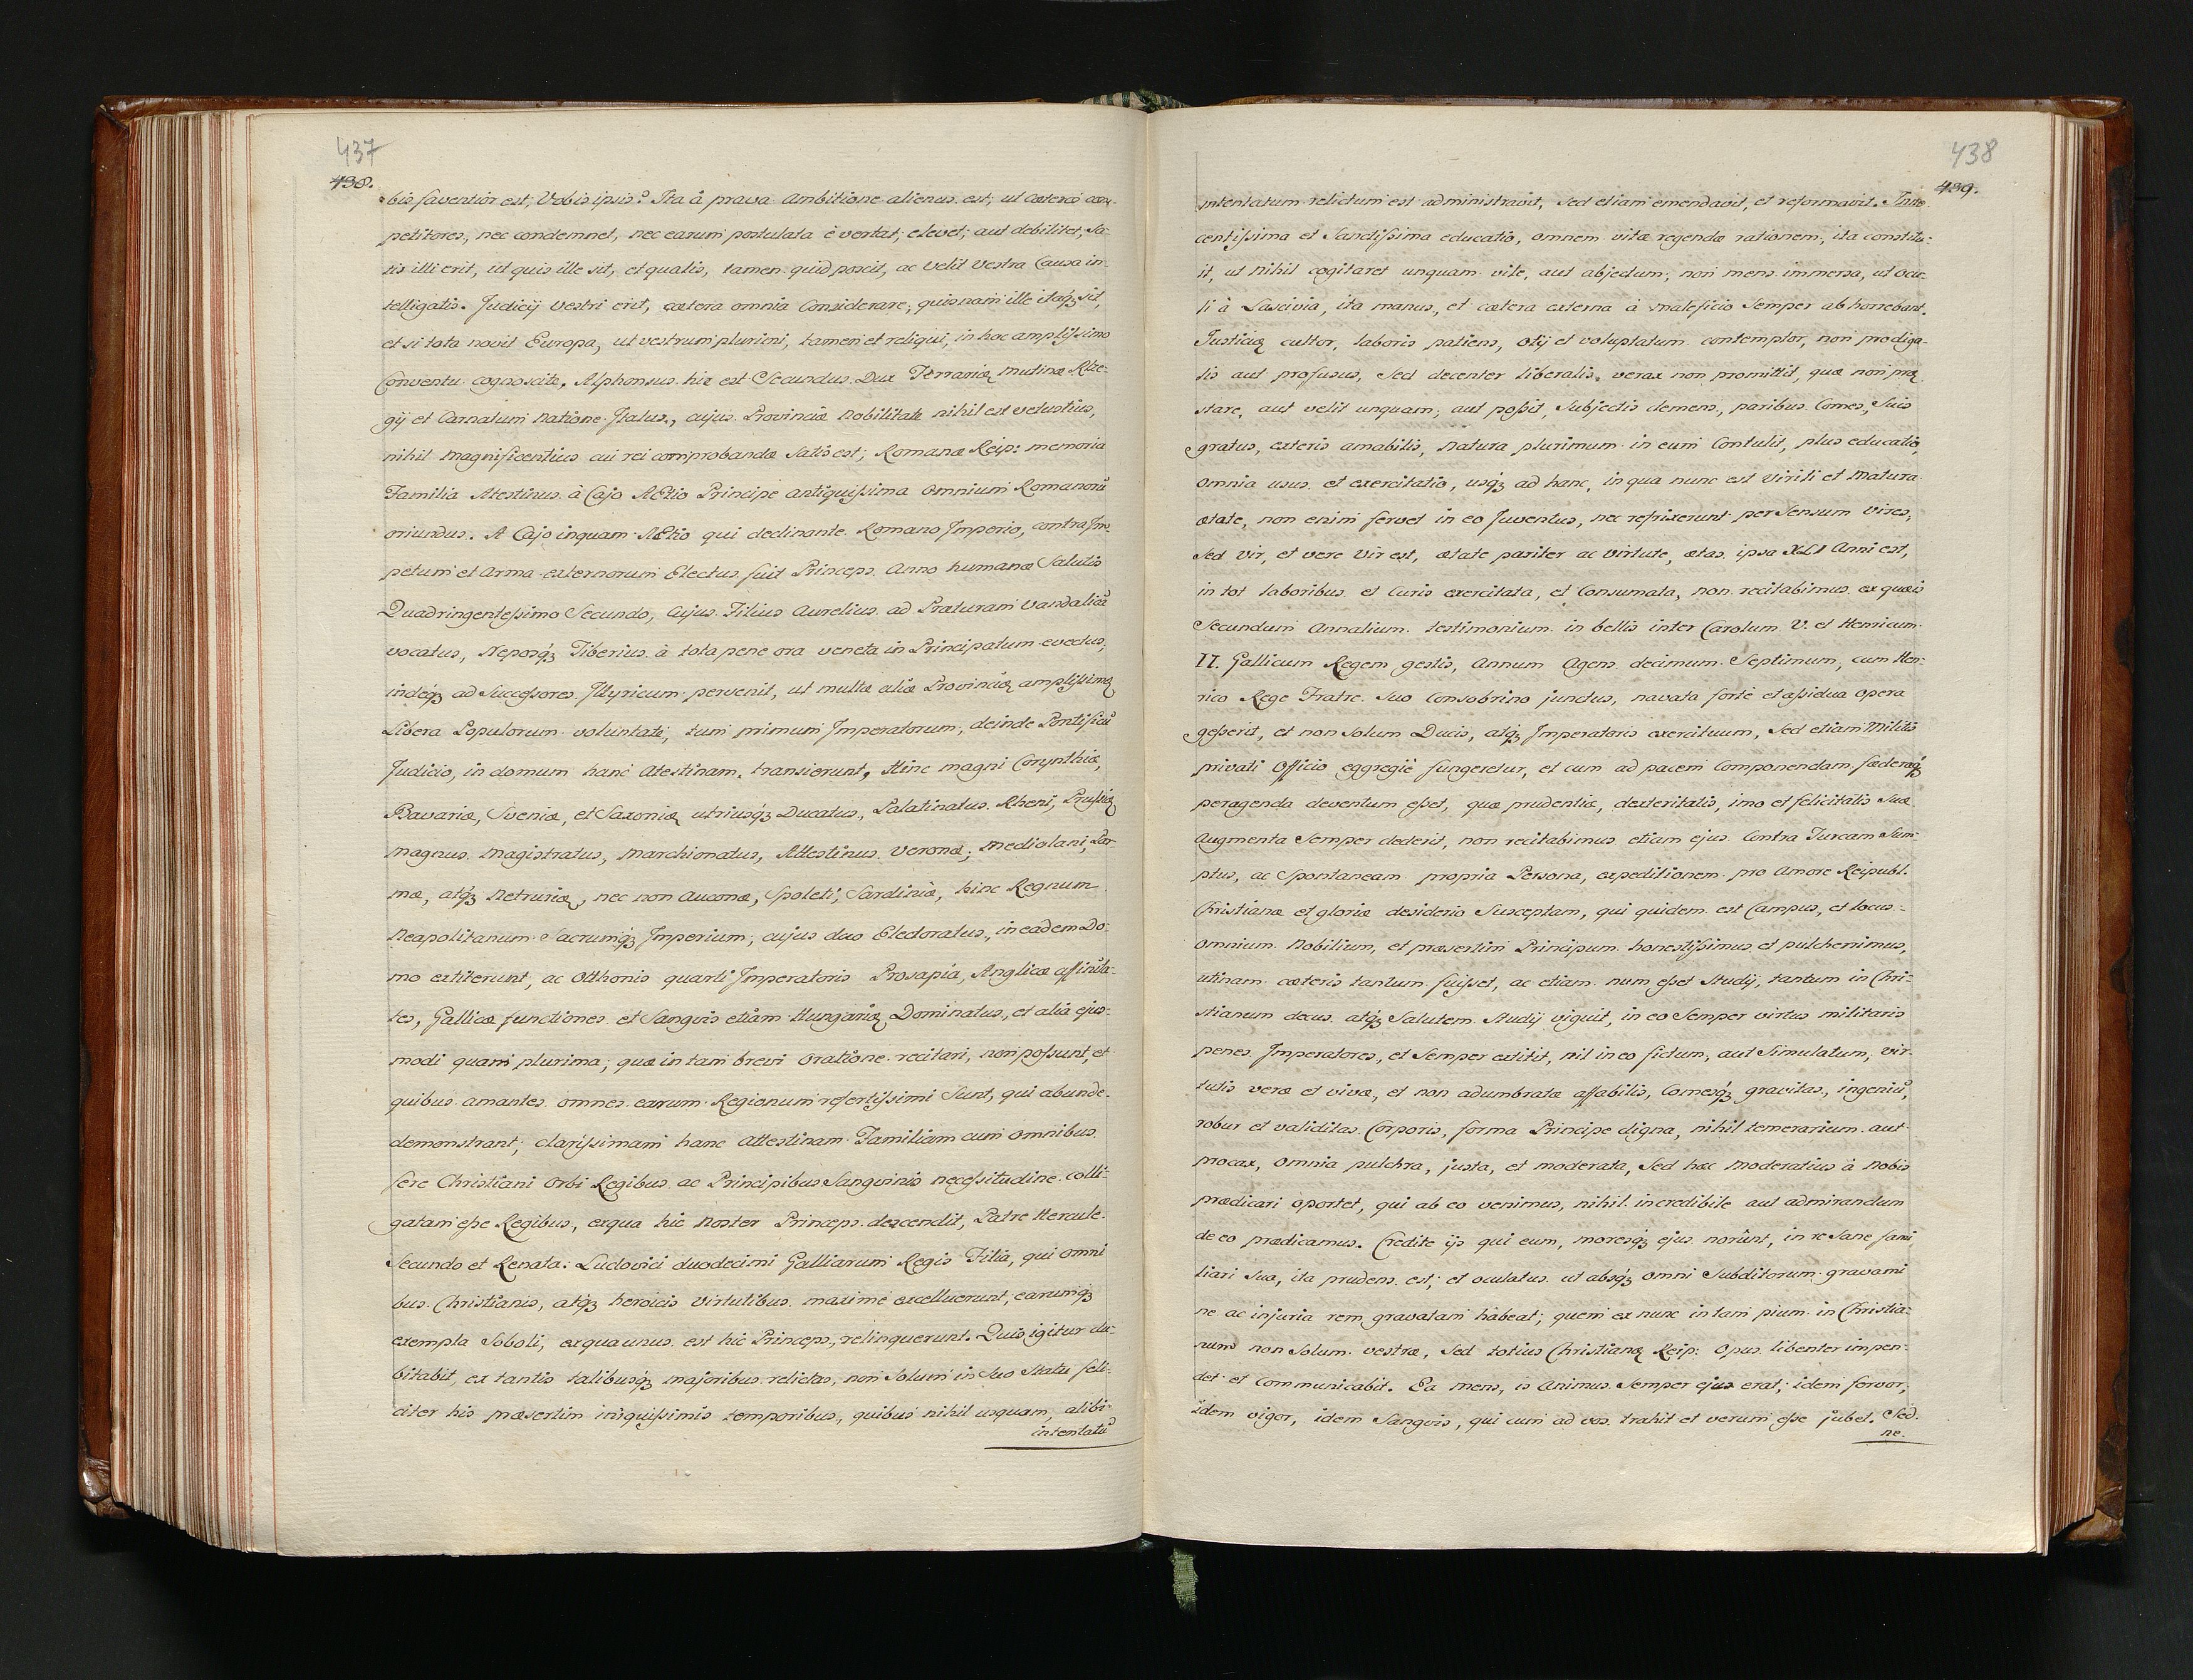 437
438.
bis faventior est, Vobis ipsis? Ita à prava Ambitione alienus est, ut cæteros com
petitores, nec condemnet, nec earum postulata èvertat; elevet; aut debilitet, Sa-
tis illi erit, ut quis ille sit, et qualis, tamen quid poscit, ac velit Vestra Causa in-
telligatis. Judicij Vestri erit, cætera omnia Considerare; quisnam ille itaq́ꝫ sit,
et si tota novit Europa, ut vestrum plurimi, tamen et reliqui, in hoc amplißimo
Conventu cognoscite, Alphonsus hic est Secundus Dux Ferrariæ Mutinæ Rhe-
gij et Carnatum Natione Italus, cujus Provinciæ Nobilitate nihil est vetustius,
nihil Magnificentius cui rei comprobandæ Satis est; Romanæ Reip: memoria
Familia Atestinus à Cajo Actio Principe antiquißima omnium Romanorũ
oriundus. A Cajo inquam Actio qui declinante Romano Imperio, contra Im-
petum et Arma externorum Electus fuit Princeps Anno humanæ Salutis
Quadringenteßimo Secundo, Cujus Filius Aurelius ad Præturam Vandalicã
vocatus, Neposq́ꝫ Tiberius à tota pene ora veneta in Principatum evectus,
indeq́ꝫ ad Succeßores Illyricum pervenit, ut multæ aliæ Provinciæ amplißimæ
Libera Populorum voluntate, tum primum Imperatorum, deinde Pontificũ
Judicio, in domum hanc Atestinam, transierunt, Hinc magni Corynthiæ,
Bavariæ, Sveniæ, et Saxoniæ utriusq́ꝫ Ducatus, Palatinatus Rheni, Prußiæ
magnus Magistratus, Marchionatus, Attestinus Veronæ; Mediolani, Par-
mæ, atq́ꝫ Netruriæ, nec non Auconæ, Spoleti, Sardiniæ, hinc Regnum
Neapolitanum Sacrumq́ꝫ Imperium, cujus duo Electoratus, in eadem Do-
mo extiterunt, ac Otthonis quarti Imperatoris Prosapia, Anglicæ affinita-
tes, Gallicæ functiones et Sangvis etiam Hungariæ Dominatus, et alia ejus-
modi quam plurima; quæ in tam brevi Oratione recitari, non poßunt, et
quibus amantes omnes earum Regionum refertißimi Sunt, qui abunde
demonstrant; clarißimam hanc Attestinam Familiam cum Omnibus
fere Christiani Orbi Regibus ac Principibus Sangvinis neceßitudine colli-
gatam eße Regibus, exqua hic Noster Princeps descendit, Patre Hercule
Secundo et Renata Ludovici duodecimi Galliarum Regis Filia, qui omni
bus Christianis, atq́ꝫ heroicis Virtutibus maxime excelluerunt, earumq́ꝫ
exempla Soboli, exqua unus est hic Princeps, relinquerunt. Quis igitur du-
bitabit, ex tantis talibusq́ꝫ majoribus relictas, non Solum in Suo Statu feli-
citer his præsertim iniquißimis temporibus, quibus nihil usquam, alibi
intentatũ
438
439.
intentatum relictum est administravit, sed etiam emendavit, et reformavit. Inno
centißima et Sanctißima educatio, omnem vitæ regendæ rationem, ita constitu-
it, ut nihil cogitaret unquam vile, aut abjectum; non mens immersa, ut ocu-
li à Lascivia, ita manus, et cætera externa à maleficio Semper abhorrebant.
Justiciæ cultor, laboris patiens, otij et voluptatum contemptor, non prodiga-
lis aut profusus, sed decenter liberalis, verax non promittit, quæ non præ
stare, aut velit unquam, aut poßit, Subjectis clemens, paribus Comes, Suis
gratus, exteris amabilis, Natura plurimum in eum Contulit, plus educatio,
omnia usus et exercitatio, usq́ꝫ ad hanc, in qua nunc est virili et Matura
ætate, non enim fervet in eo Juventus, nec refrixerunt per Sensum vires,
Sed vir, et vere vir est, ætate pariter ac virtute, ætas ipsa XLI Anni est,
in tot laboribus et Curis exercitata, et Consumata, non recitabimus ex quæis
Secundum Annalium testimonium in bellis inter Carolum V. et Henricum
II. Gallicum Regem gestis, Annum Agens decimum Septimum, cum Hen-
rico Rege Fratre Suo Consobrino junctus, navata fortè et aßidua opera
geßerit, et non Solum Ducis, atq́ꝫ Imperatoris exercituum, Sed etiam Militis
privati Officio eggregiè fungeretur, et cum ad pacem Componendam fæderaq́ꝫ
peragenda deventum eßet, quæ prudentiæ, dexteritatis, imo et felicitatis Suæ
Augmenta Semper dederit, non recitabimus etiam ejus Contra Turcam Sum-
ptus, ac Spontaneam propria Persona, expeditionem pro Amore Reipubl.
Christianæ et gloriæ desiderio Susceptam, qui quidem est Campus, et locus
omnium Nobilium, et præsertim Principum honestißimus et pulcherrimus,
utinam cæteris tantum fuißet, ac etiam num eßet Studij, tantum in Chri-
stianum decus atq́ꝫ Salutem Studij viguit, in eo Semper virtus militaris
penes Imperatores, et Semper extitit, nil in eo fictum, aut Simulatum, vir-
tutis veræ et vivæ, et non adumbratæ affabilis, Comesq́ꝫ gravitas, ingeniũ,
robur et validitas Corporis, forma Principe digna, nihil temerarium aut
procax, omnia pulchra, justa, et moderata, Sed hæc moderatius à Nobis
prædicari oportet, qui ab eo venimus, nihil incredibile aut admirandum
de eo prædicamus. Credite ijs qui eum, moresq́ꝫ ejus norûnt, in re Sane fami
liari Sua, ita prudens est; et oculatus ut absq́ꝫ omni Subditorum gravami
ne ac injuria rem gravatam habeat; quem ex nunc in tam pium in Christia-
num non Solum vestræ, sed totius Christianæ Reip: Opus libenter impen-
det et Communicabit. Ea mens, is Animus Semper ejus erat; idem fervor,
idem vigor, idem Sangvis, qui cum ad vos trahit et verum eße jubet. Sed
ne.